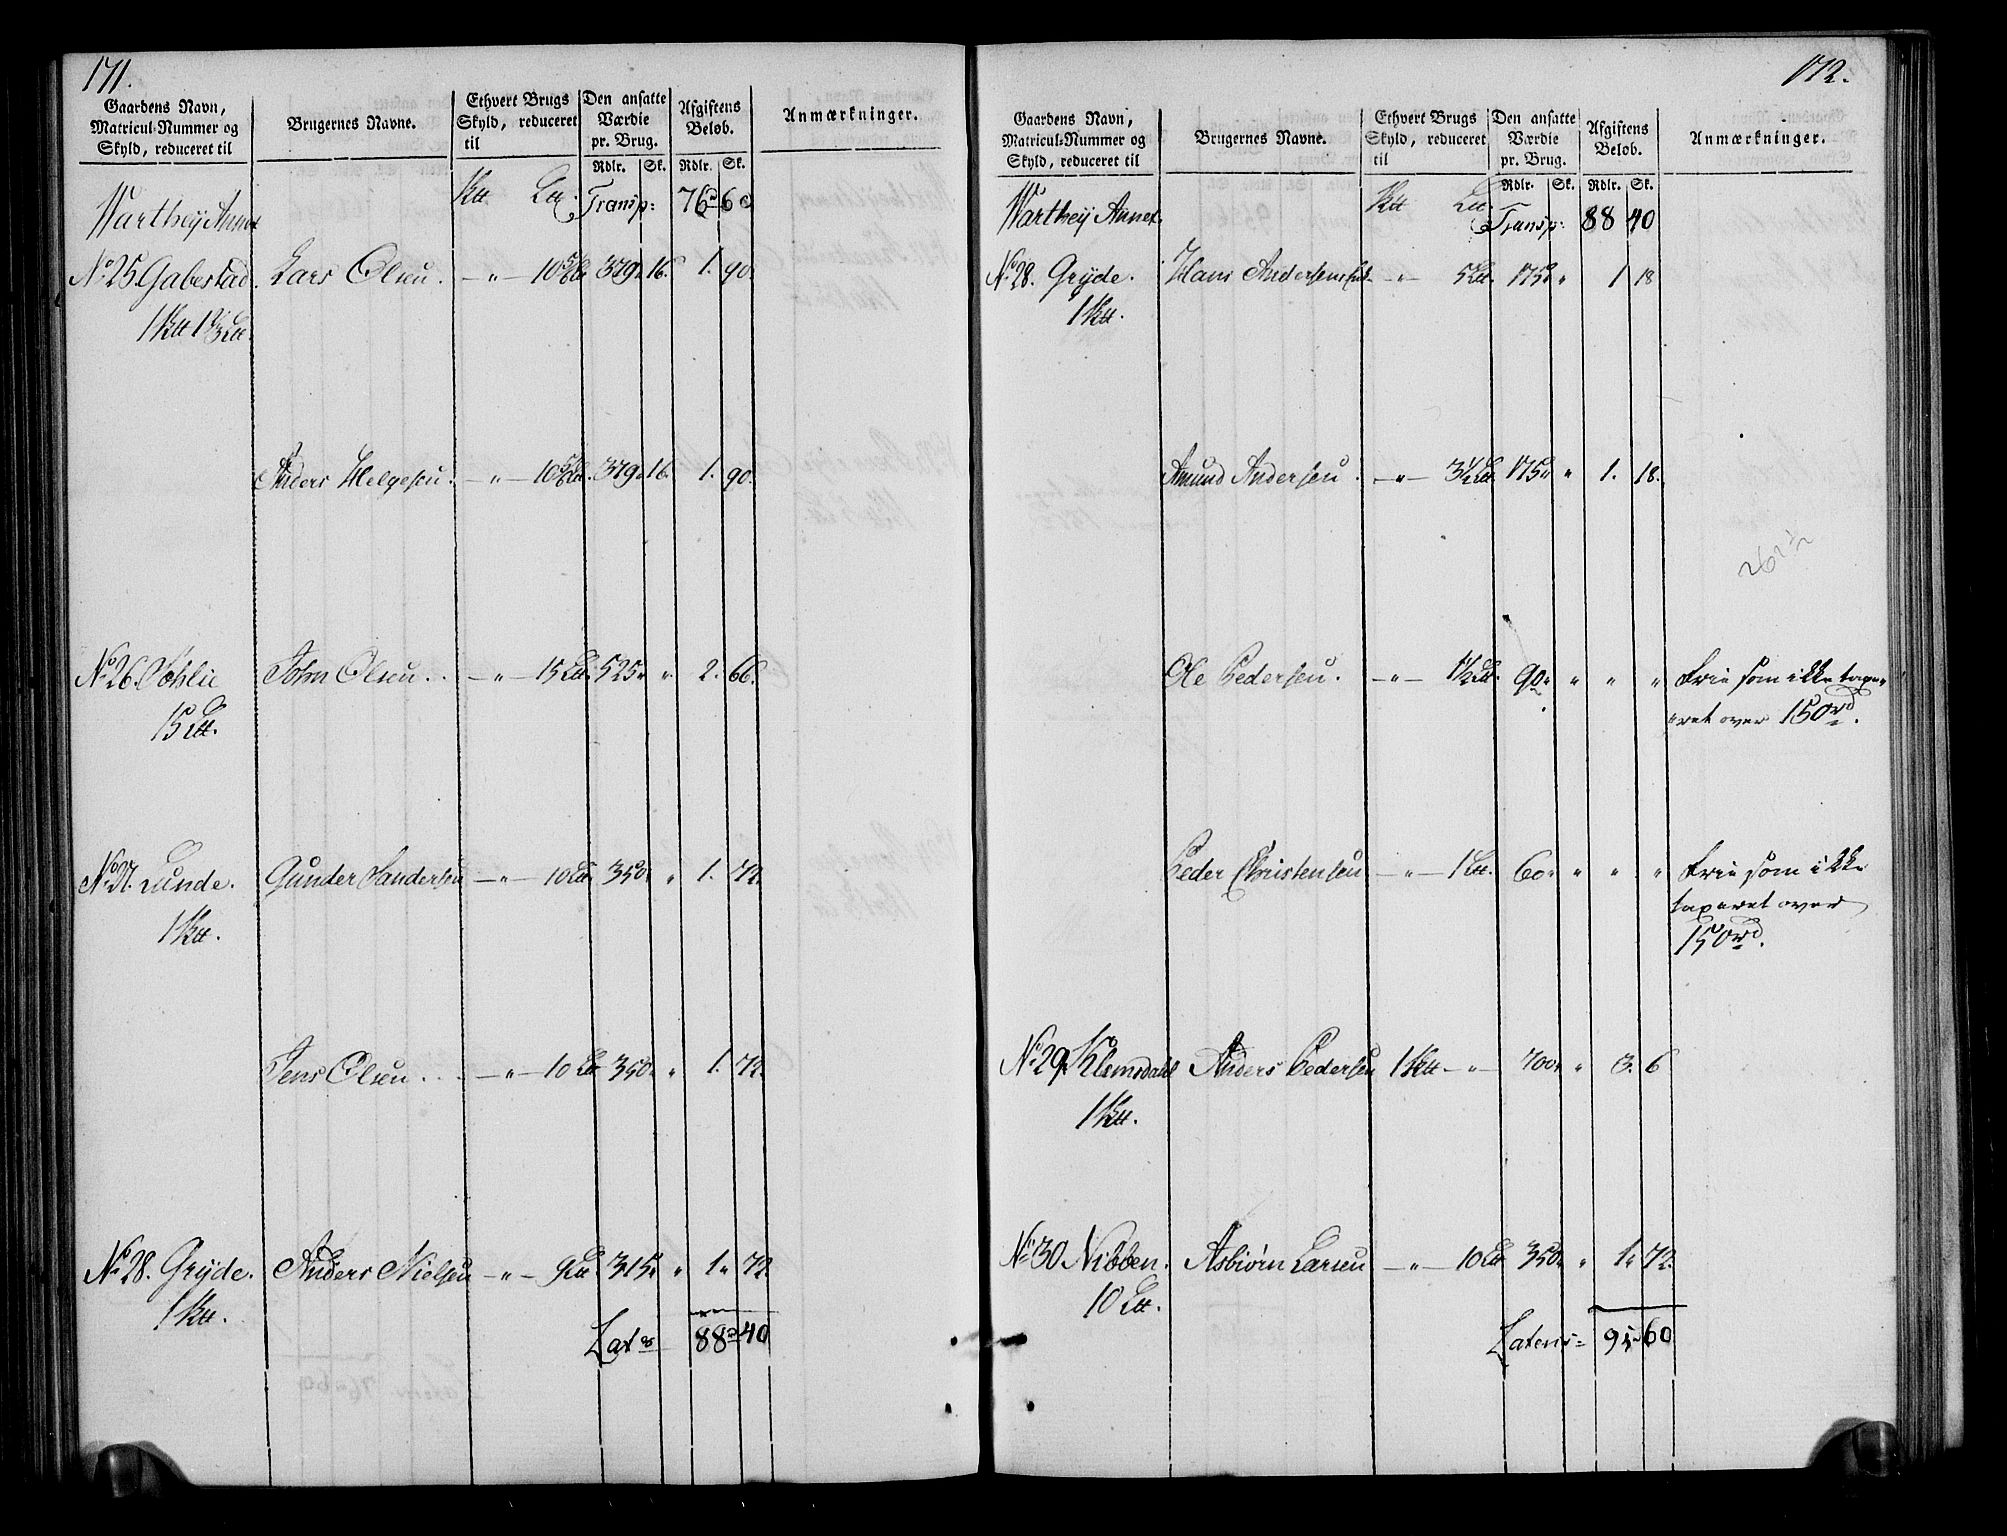 171.
Gaardens Navn, Matricul-Nummer og Skyld, reduceret til | Brugernes Navne. | Ethvert Brugs Skyld, reduceret til | Den ansatte Værdie pr. Brug. Rdlr. Sk. | Afgiftens Beløb. Rdlr. Sk. | Anmærkninger.
Wartheÿ Annex Transp: 76 60
No 25. Gabestad. Lars Olsen. — " — 10 5/6 379 " 16. 1. 90.
1
Anders Helgesen. — " — 10 5/6 379 " 16. 1. 90.
No 26. Søhlie John Olsen. — " — 15 525 " " 2. 66.
15
No 27. Lunde. Gunder Sandersen — " — 10 350 " " 1. 72.
1
Jens Olsen — " — 10 350 " " 1. 72.
No 28. Grÿde. Anders Nielsen — " — 9 315 " " 1 " 72.
1
Lats 88 " 40
172.
Gaardens Navn, Matricul-Nummer og Skyld, reduceret til | Brugernes Navne. | Ethvert Brugs Skyld, reduceret til | Den ansatte Værdie pr. Brug. Rdlr. Sk. | Afgiftens Beløb. Rdlr. Sk. | Anmærkninger.
Wartheÿ Annex. Transp: 88 40
No 28. Grÿde. Hans Andersen — " — 5 175 " " 1 18
1
Amund Andersen. — " — 3 1/2 175 " " 1. 18.
Ole Pedersen. — " — 1 1/2 90 " " " " Frie som ikke taxe-
ret over 150 rd.
Peder Christensen — " — 1 60 " " " " Frie som ikke
taxeret over
150 rd.
No 29. Klemsdahl Anders Pedersen 1 — " — 700 " " 3. 6
1
No 30 Nibben. Asbiørn Larsen — " — 10 350 " " 1 " 72.
10
Latens = 95 " 60